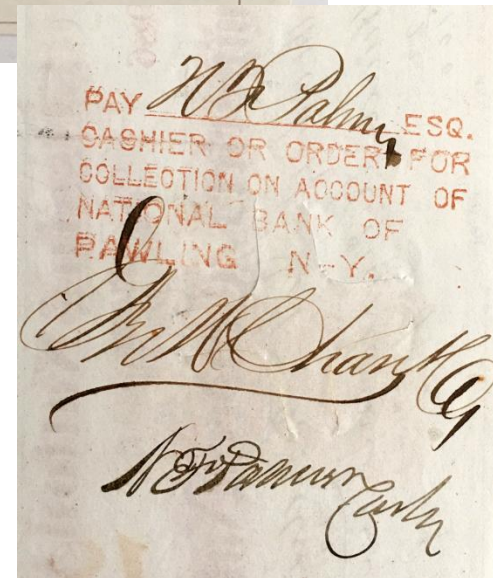 PAY N F Palmer ESQ.
CASHIER OR ORDER FOR
COLLECTION ON ACCOUNT OF
NATIONAL BANK OF
PAWLING N-Y.
N F Palmer